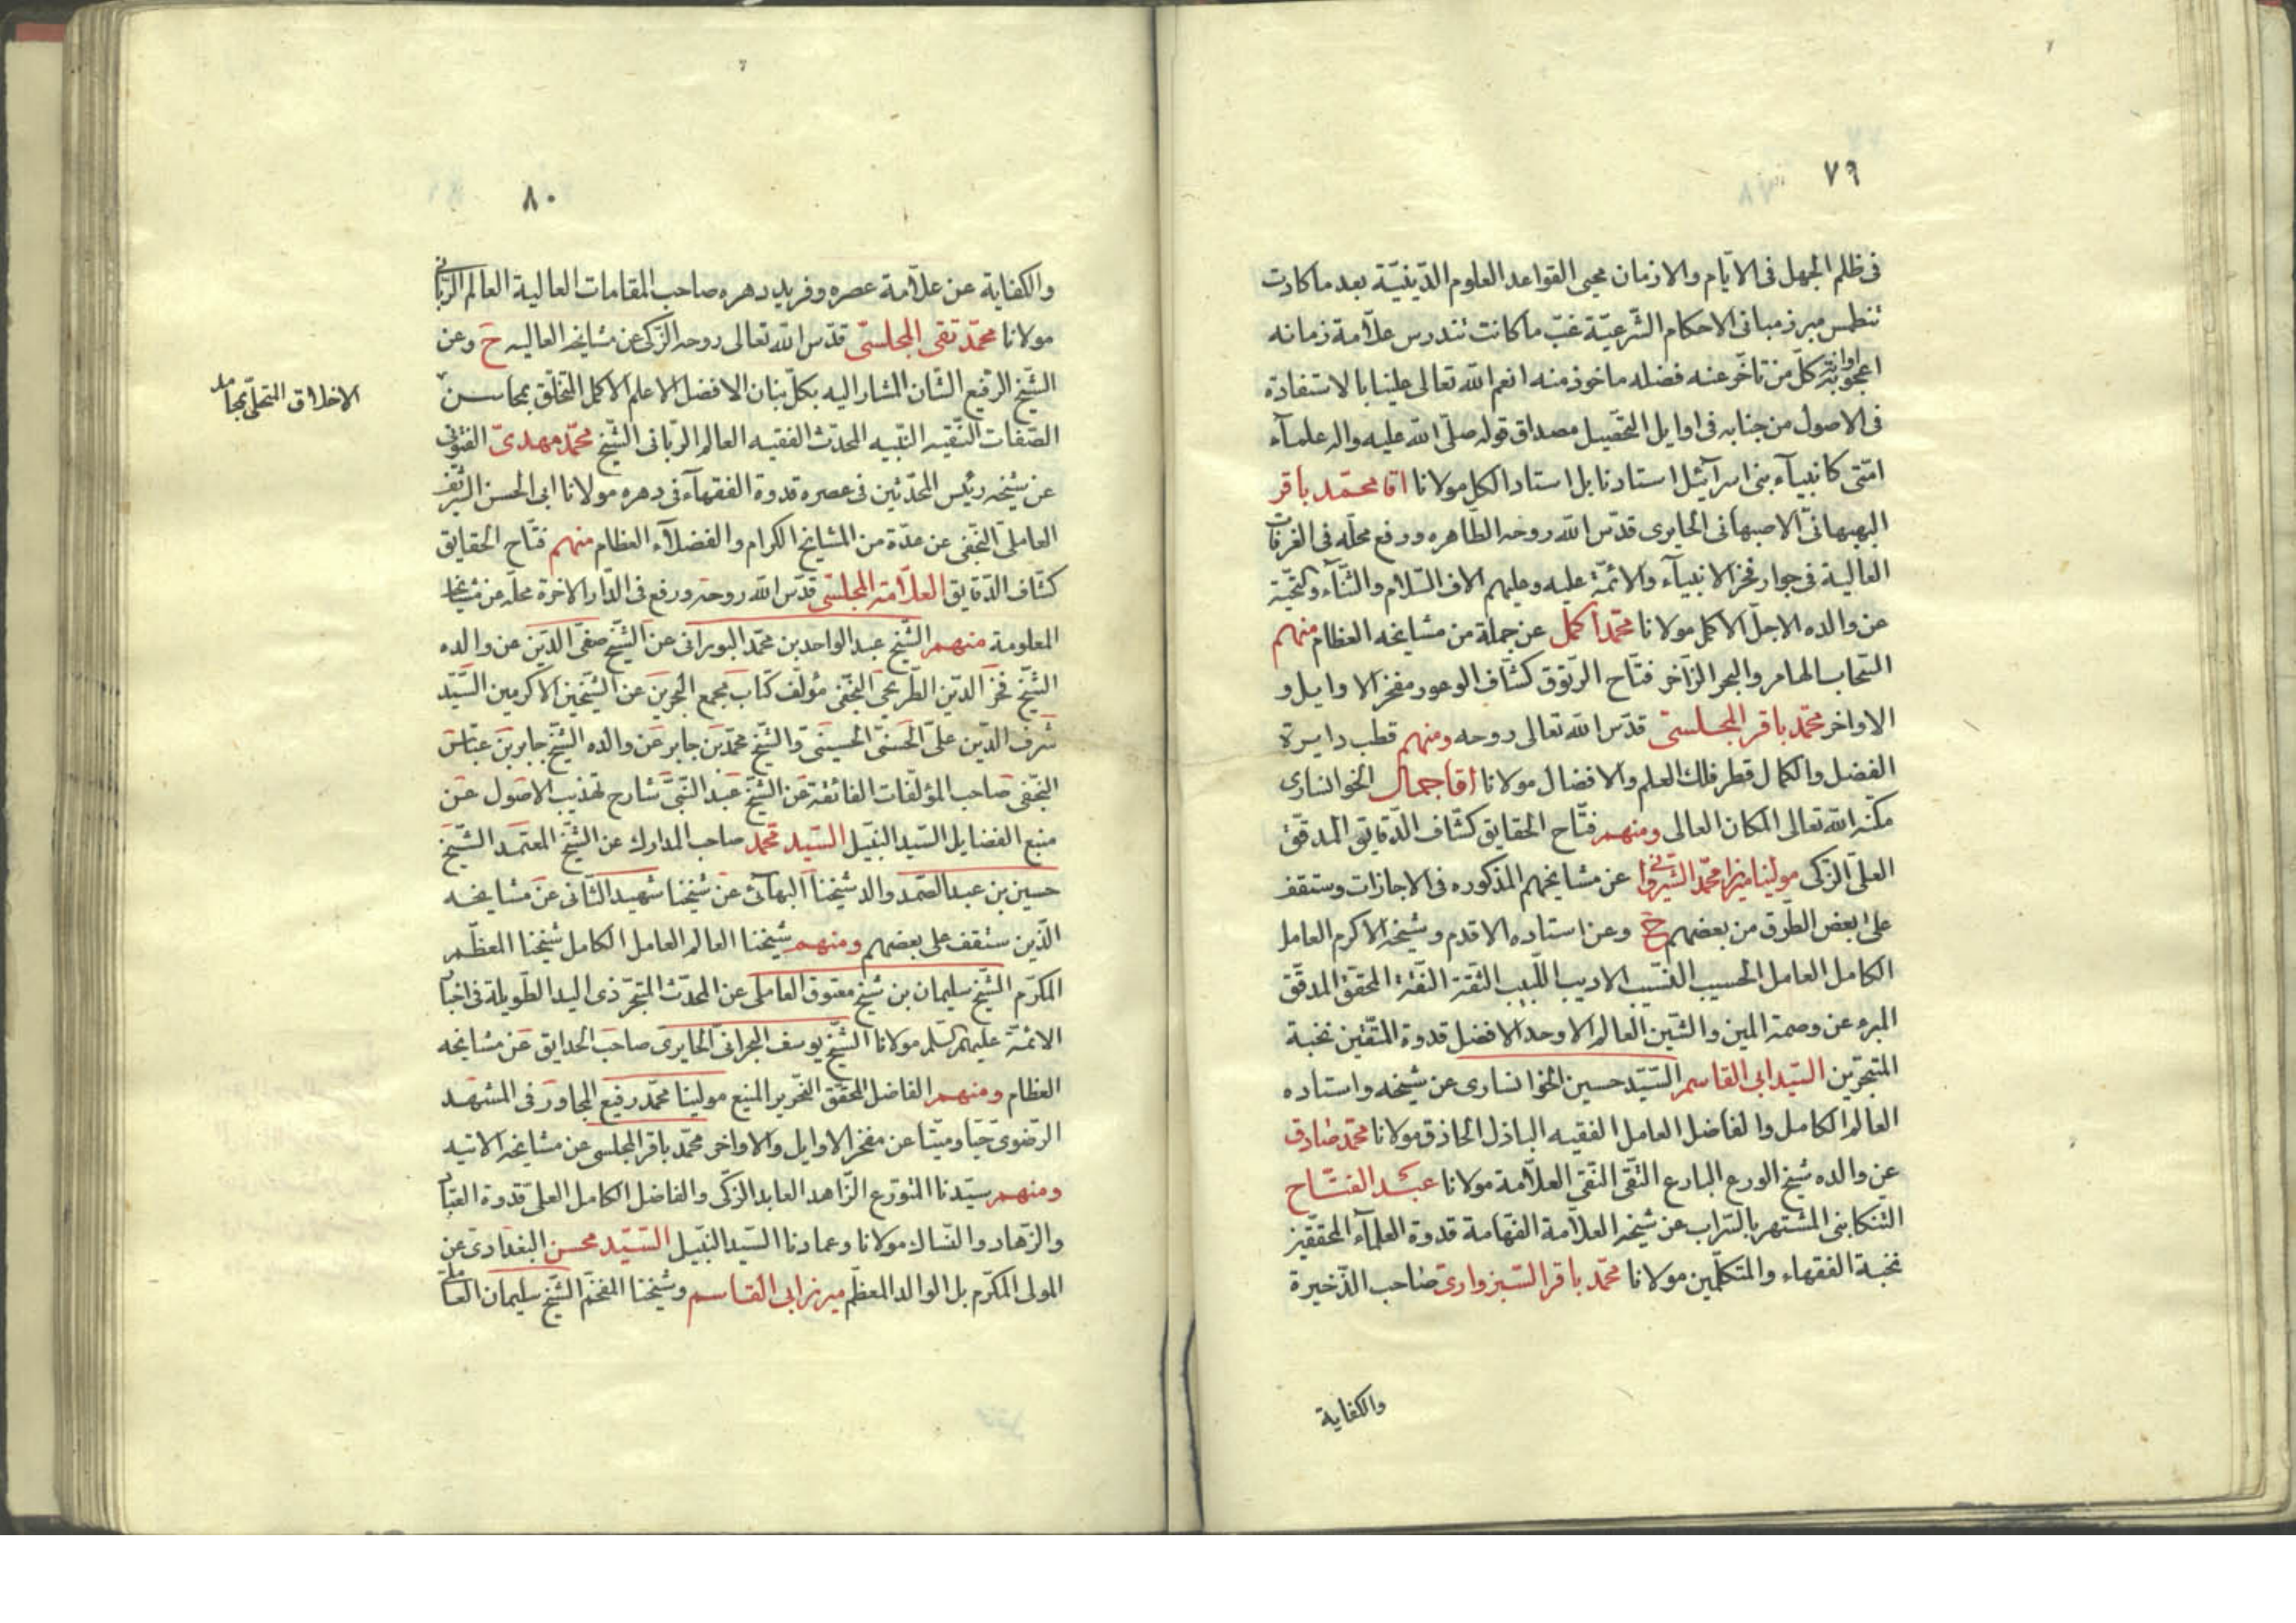 ٧٩
فى ظلم الجهل فى الايّام والازمان محيى القواعد العلوم الدّينيّة بعد ما كادت
تنطمس مبرز مبانى الاحكام الشّرعيّة غبّ ما كانت تندرس علاّمة زمانه
اعجوبة اوانه كلّ من تاخّر عنه فضله ماخوذ منه انعم الله تعالى علينا بالاستفادة
فى الاصول من جنابه فى اوايل التحصيل مصداق قوله صلّى الله عليه واله علمآء
امّتى كانبيآء بنى اسرآئيل استادنا بل استاد الكل مولانا اقا محمّد باقر
البهبهانىّ الاصبهانى الحايرى قدّس الله روحه الطّاهره ورفع محلّه فى الغرفات
العالية فى جوار فخر الانبيآء والائمّة عليه وعليهم الاف السّلام والثّنآء والتحيّة
عن والده الاجلّ الاكمل مولانا محمّد اكمل عن جملة من مشايخه العظام منهم
السّحاب الهامر والبحر الزّاخر فتّاح الرّتوق كشّاف الوعور مفخر الاوايل و
الاواخر محمّد باقر المجلسىّ قدّس الله تعالى روحه ومنهم قطب دايرة
الفضل والكمال قطر فلك العلم والافضال مولانا اقا جمال الخوانسارى
مكّنه الله تعالى المكان العالى ومنهم فتّاح الحقايق كشّاف الدّقايق المدقّق
العلىّ الزّكى مولينا ميرزا محمّد الشيروانى عن مشايخهم المذكوره فى الاجازات وستقف
على بعض الطّرق من بعضهم ح وعن استاده الاقدم وشيخه الاكرم العامل
الكامل العامل الحسيب النسّيب الاديب اللّبيب الثّقة النّقة المحقّق المدقّق
المبره عن وصمة المين والشّين العالم الاوحد الافضل قدوة المتّقين نخبة
المتبحّرين السّيّد ابى القاسم السّيّد حسين الخوانسارى عن شيخه واستاده
العالم الكامل والفاضل العامل الفقيه الباذل الحاذق مولانا محمّد صادق
عن والده شيخ الورع البارع التّقى النّقى العلاّمة مولانا عبد الفتّاح
التّنكابنى المشتهر بالتراب عن شيخه العلاّمة الفهّامة قدوة العلمآء المحقّقين
نخبة الفقهاء والمتكلّمين مولانا محمّد باقر السّبزوارىّ صاحب الذّخيرة
والكفاية
٨٠
والكفاية عن علاّمة عصره وفريد دهره صاحب المقامات العالية العالم الربّانى
مولانا محمّد تقى المجلسىّ قدّس الله تعالى روحه الزّكى عن مشايخه العاليه ح وعن
الشّيخ الرّفيع الشّان المشار اليه بكلّ بنان الافضل الاعلم الاكمل التخلّق بمحاسن
الاخلاق التحلّى بمجامل
الصّفات النّقيه النّبيه المحدّث الفقيه العالم الرّبّانى الشّيخ محمّد مهدىّ الفتونى
عن شيخه رئيس المحدّثين فى عصره قدوة الفقهآء فى دهره مولانا ابى الحسن الشّريف
العاملى النّجفى عن عدّة من المشايخ الكرام والفضلآء العظام منهم فتّاح الحقايق
كشّاف الدّقايق العلاّمة المجلسىّ قدّس الله روحه ورفع فى الدّار الاخرة محلّه عن مشايخه
المعلومة منهم الشّيخ عبد الواحد بن محمّد البورانى عن الشّيخ صفىّ الدّين عن والده
الشّيخ فخر الدّين الطّريحى النّجفى مؤلّف كتاب مجمع البحرين عن الشّيخين الاكرمين السّيّد
شرف الدّين علىّ الحسنىّ الحسينىّ والشّيخ محمّد بن جابر عن والده الشّيخ جابر بن عبّاس
النّجفى صاحب المؤلّفات الفائقة عن الشّيخ عبد النّبىّ شارح تهذيب الاصول عن
منبع الفضايل السّيد النّبيل السّيّد محمّد صاحب المدارك عن الشّيخ المعتمد الشّيخ
حسين بن عبد الصّمد والد شيخنا البهآئى عن شيخنا شهيد الثّانى عن مشايخه
الّذين ستقف على بعضهم ومنهم شيخنا العالم العامل الكامل شيخنا المعظّم
المكرّم الشّيخ سليمان بن شيخ معتوق العاملى عن المحدّث المتبحّر ذى اليد الطّويلة فى اخبار
الائمّة عليهم السّلم مولانا الشّيخ يوسف البحرانىّ الحايرى صاحب الحدايق عن مشايخه
العظام ومنهم الفاضل المحقّق النّحرير المنيع مولينا محمّد رفيع المجاور فى المشهد
الرّضوىّ حيّا وميّتا عن مفخر الاوايل والاواخر محمّد باقر المجلسى عن مشايخه الاتيه
ومنهم سيّدنا المتورّع الزّاهد العابد الزّكىّ والفاضل الكامل العلىّ قدوة العبّاد
والزّهاد والنّساك مولانا وعمادنا السّيّد النّبيل السّيّد محسن البغدادىّ عن
المولى المكرّم بل الوالد المعظّم ميرزا ابى القاسم وشيخنا المفخّم الشّيخ سليمان العاملى